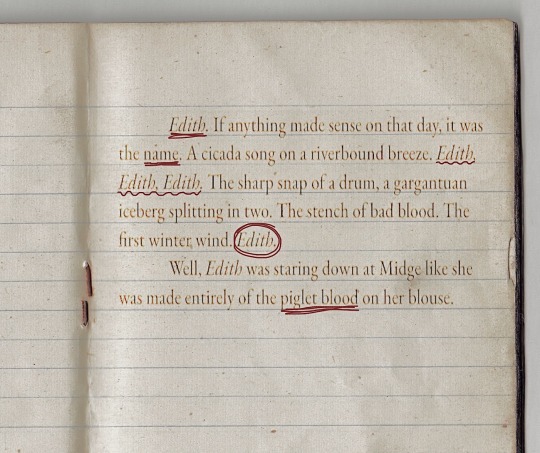 Edith. If anything made sense on that day, it was
the name. A cicada song on a riverbound breeze. Edith,
Edith, Edith. The sharp snap of a drum, a gargantuan
iceberg splitting in two. The stench of bad blood. The
first winter wind. Edith.
Well, Edith was staring down at Midge like she
was made entirely of the piglet blood on her blouse.